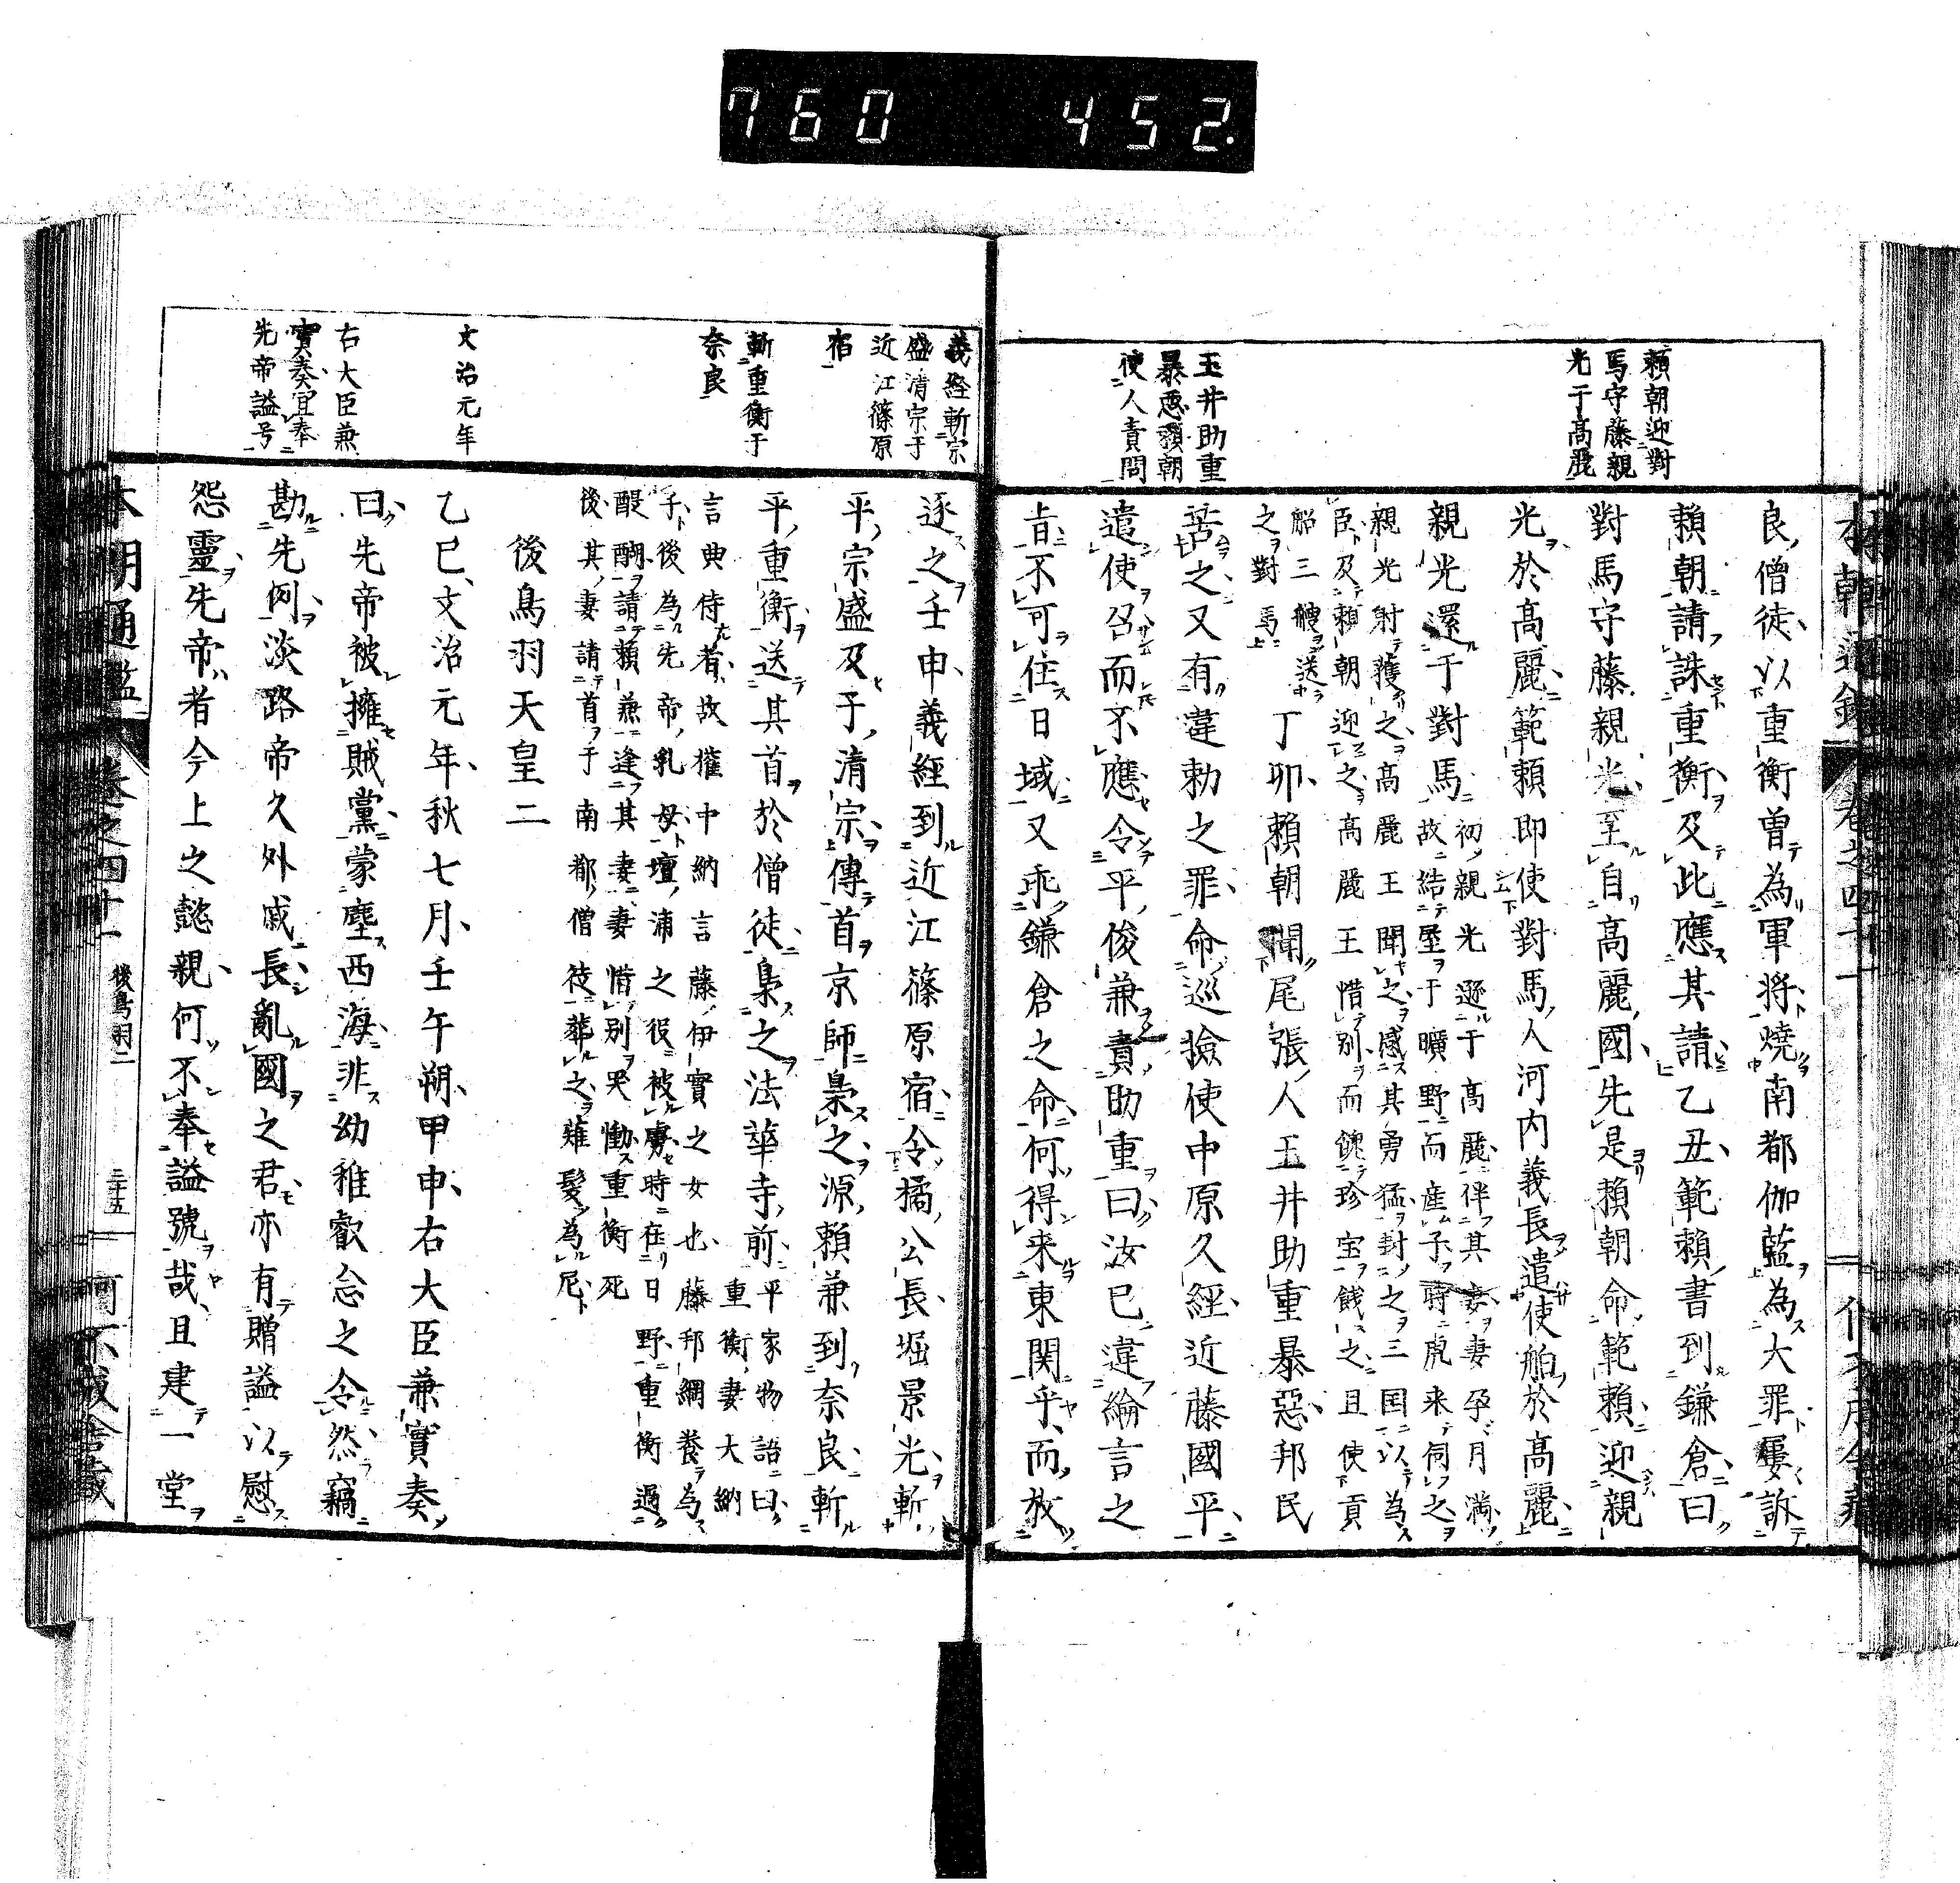 760 452.
賴朝迎對
馬守藤親
光于高麗
玉井助重
暴惡賴朝
使人責問
良僧徒以重衡曾為軍將燒南都伽藍為大罪屢訴
賴朝請誅重衡及此應其請乙丑範賴書到鎌倉曰
對馬守藤親光至自高麗國先是賴朝命範賴迎親
光於高麗範賴即使對馬人河内義長遣使舶於高麗
親光還于對馬初親光遜于高麗伴其妻妻孕月満
故結壂于曠野而産子時虎来伺之
親光射獲之高麗王聞之感其勇猛封之三国以為
臣及賴朝迎之高麗王惜別而餽珍宝餞之且使貢
船三艘送
之對馬
丁卯賴朝聞尾張人玉井助重暴惡邦民
苦之又有違勅之罪命巡撿使中原久經近藤國平
遣使召而不應令平俊兼責助重曰汝已違綸言之
旨不可住日域又乖鎌倉之命何得来東関乎而放
義経斬宗
盛清宗于
近江篠原
宿
斬重衡于
奈良
文治元年
右大臣兼
實奏宜奉
先帝謚号
逐之壬申義經到近江篠原宿令橘公長堀景光斬
平宗盛及子清宗傳首京師梟之源賴兼到奈良斬
平重衡送其首於僧徒梟之法華寺前
平家物語曰
重衡妻大納
言典侍者故權中納言藤伊實之女也藤邦綱養為
子後為先帝乳母壇浦之役被虜時在日野重衡過
醍醐請賴兼逢其妻妻惜別哭慟重衡死
後其妻請首于南都僧徒葬之薙髪為尼
後鳥羽天皇二
乙巳文治元年秋七月壬午朔甲申右大臣兼實奏
曰先帝被擁賊黨蒙塵西海非幼稚叡念之令然竊
勘先例淡路帝久外戚長亂國之君亦有贈謚以慰
怨靈先帝者今上之懿親何不奉謚號哉且建一堂
本朝通鑑 卷之四十一 後鳥羽二 三十五